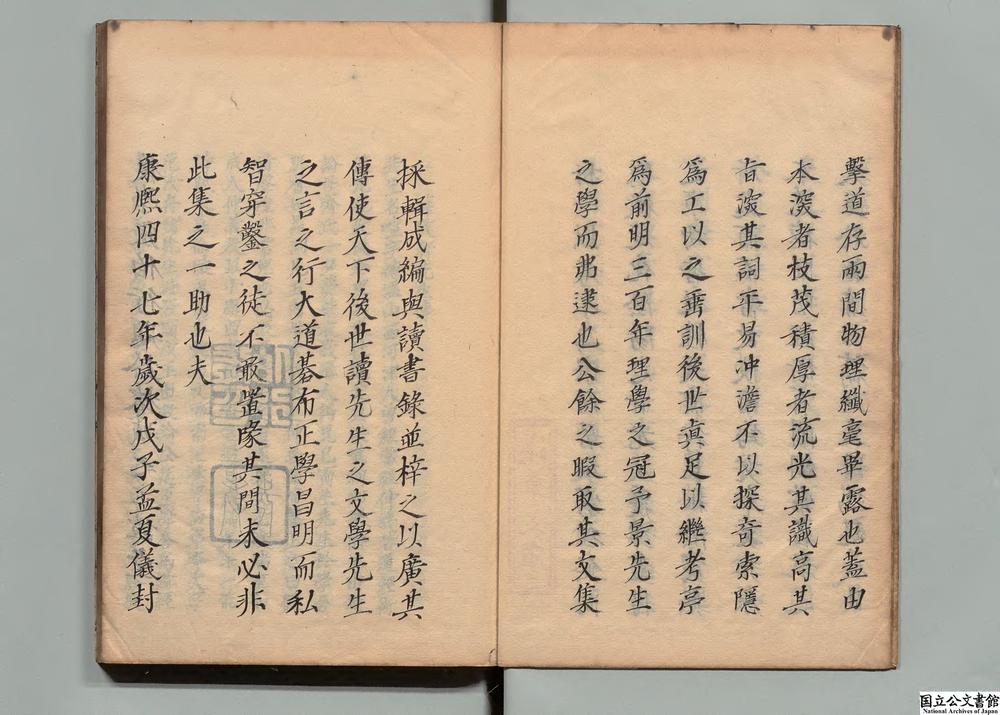 擊道存兩間物理纖毫畢露也蓋由
本深者枝茂積厚者流光其識高其
旨深其詞平易冲澹不以探奇索隱
爲工以之垂訓後世眞足以繼考亭
爲前明三百年理學之冠予景先生
之學而弗逮也公餘之暇取其文集
採輯成編與讀書錄並梓之以廣其
傳使天下後世讀先生之文學先生
之言之行大道碁布正學昌明而私
智穿鑿之徒不敢置喙其間未必非
此集之一助也夫
康熙四十七年歲次戊子孟夏儀封
国立公文書館
National Archives of Japan